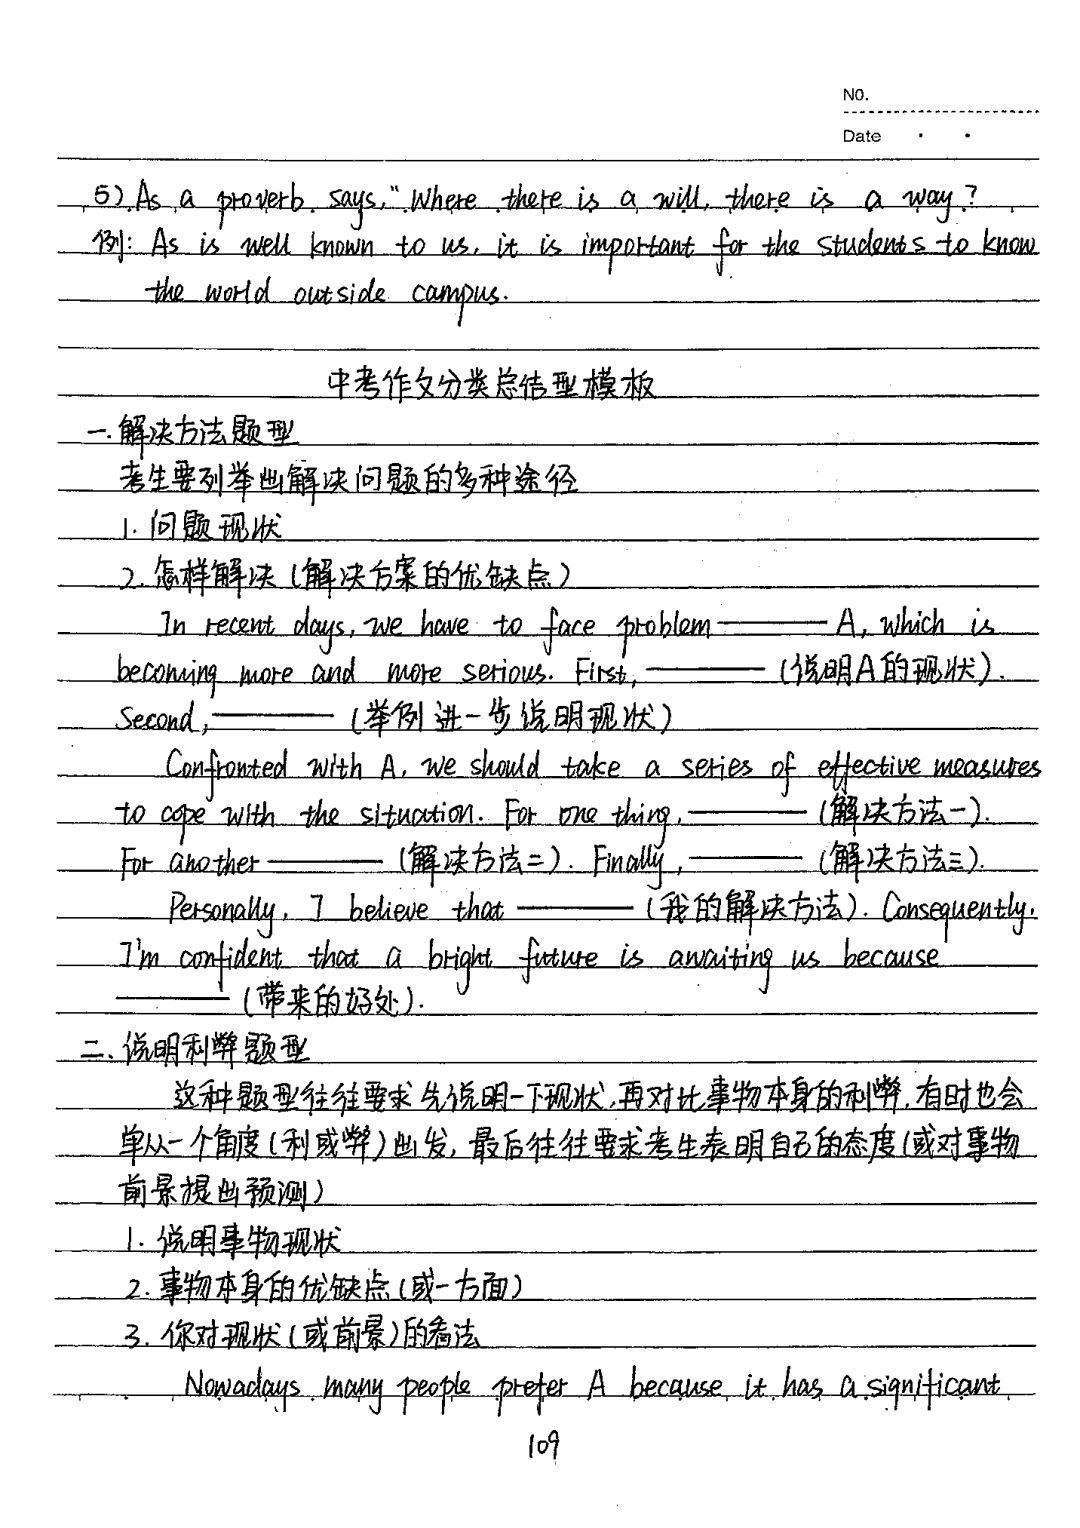 NO.
Date
5) As a proverb says, "Where there is a will, there is a way?
例: As is well known to us, it is important for the students to know
the world outside campus.
中考作文分类总结型模板
一.解决方法题型
考生要列举出解决问题的多种途径
1. 问题现状
2. 怎样解决(解决方案的优缺点)
In recent days, we have to face problem ——— A, which is
becoming more and more serious. First, ——— (说明A的现状).
Second, ——— (举例进一步说明现状)
Confronted with A, we should take a series of effective measures
to cope with the situation. For one thing, ——— (解决方法一).
For another ——— (解决方法二). Finally, ——— (解决方法三).
Personally, I believe that ——— (我的解决方法). Consequently,
I'm confident that a bright future is awaiting us because
——— (带来的好处).
二.说明利弊题型
这种题型往往要求先说明一下现状,再对比事物本身的利弊,有时也会
单从一个角度(利或弊)出发,最后往往要求考生表明自己的态度(或对事物
前景提出预测)
1. 说明事物现状
2. 事物本身的优缺点(或一方面)
3. 你对现状(或前景)的看法
Nowadays many people prefer A because it has a significant
109